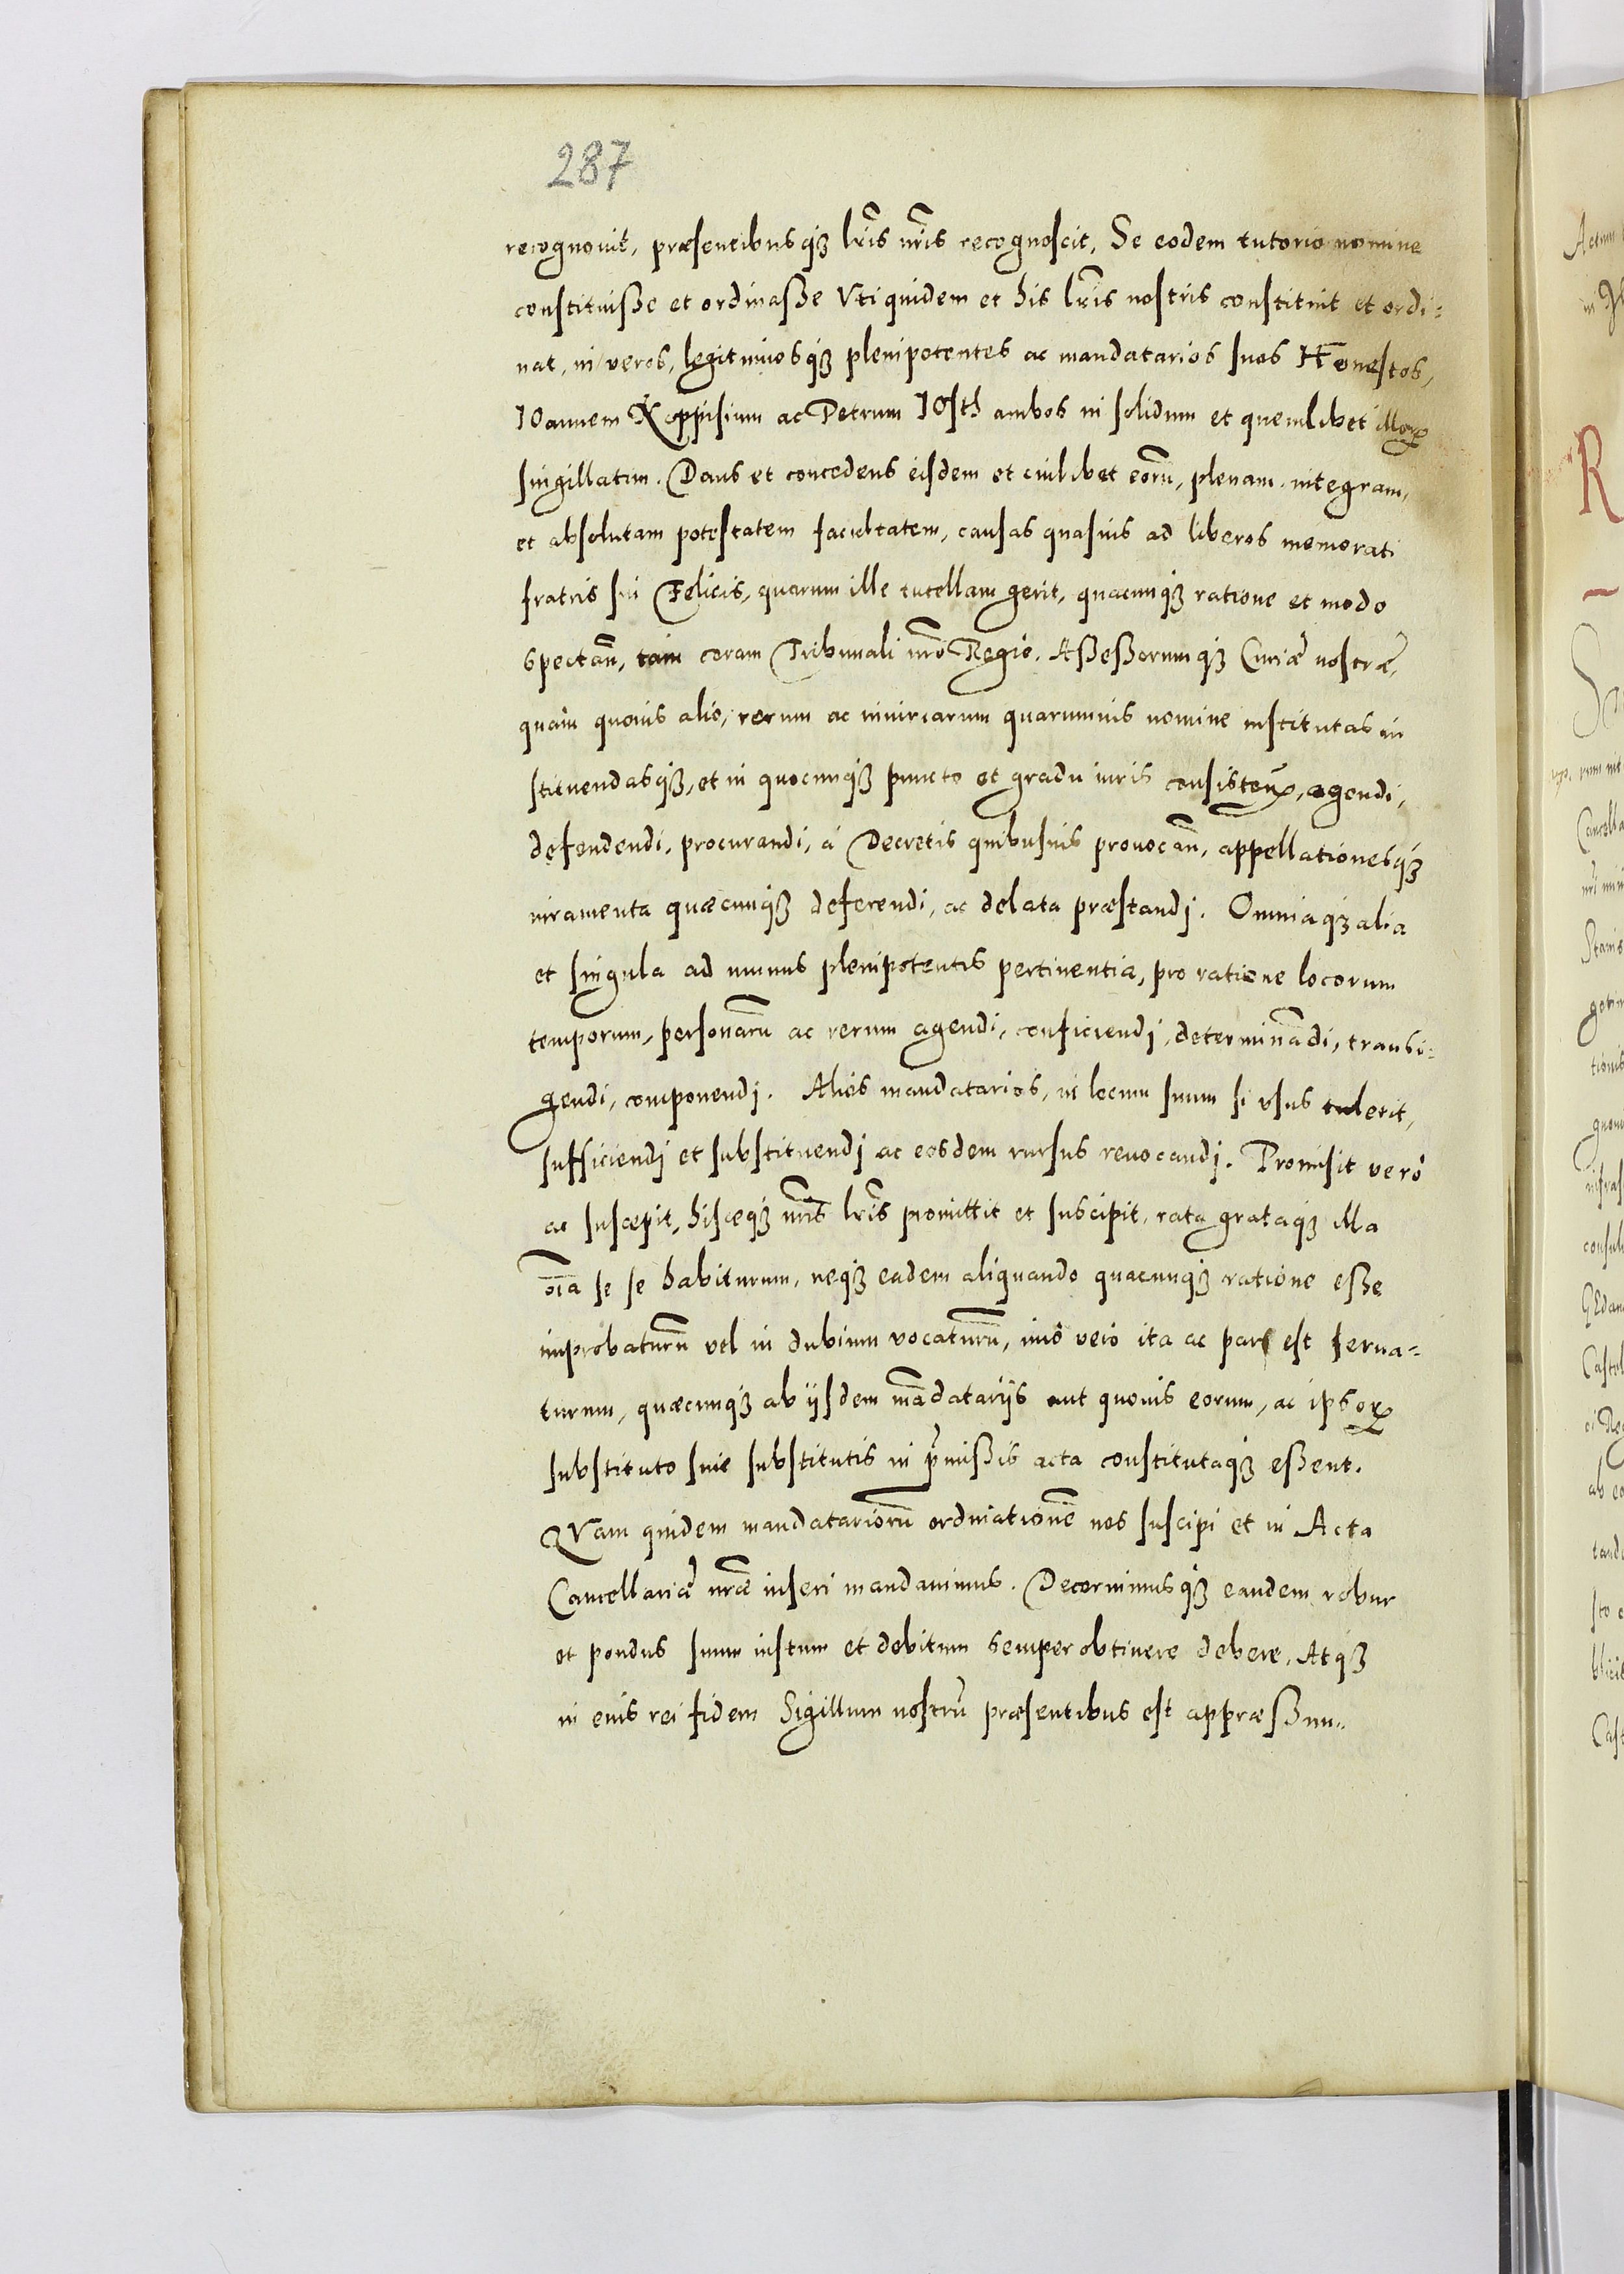 287
recognouit, præsentibusq₃ lr̃is nr̃is recognoscit, Se eodem tutorio nomine
constituisse et ordinasse Vti quidem et his lr̃is nostris constituit et ordi=
nat, in veros, legitimosq₃ plenipotentes ac mandatarios suos Honestos,
IOannem Koppisium ac Petrum IOsth ambos in solidum et quemlibet illorꝝ
singillatim. Dans et concedens eisdem et cuilibet eorũ, plenam, integram,
et absolutam potestatem facultatem, causas quasuis ad liberos memorati
fratris sui Felicis, quarum ille tutellam gerit, quacunq₃ ratione et modo
spectañ, tam coram Tribunali nr̃o Regio, Assessorumq₃ Curiæ nostræ,
quàm quouis alio, rerum ac iniuriarum quarumuis nomine institutas in
stituendasq₃, et in quocunq₃ puncto et gradu iuris consisteñ, agendi,
defendendi, procurandi, à Decretis quibusuis prouocañ, appellationesq₃
iuramenta quæcunq₃ deferendi, ac delata præstandj. Omniaq₃ alia
et singula ad munus plenipotentis pertinentia, pro ratione locorum
temporum, personarũ ac rerum agendi, conficiendj, determinãdi, transi=
gendi, componendj. Alios mandatarios, in locum suum si vsus tulerit,
sufficiendj et substituendj ac eosdem rursus reuocandj. Promisit verò
ac suscepit, hisceq₃ nr̃is lr̃is promittit et suscipit, rata grataq₃ illa
oĩa se se habiturum, neq₃ eadem aliquando quacunq₃ ratione esse
improbaturũ vel in dubium vocaturũ, imò verò ita ac par est serua=
turum, quæcunq₃ ab ijsdem mãdatarijs aut quouis eorum, ac ipsorꝝ
substituto siue substitutis in p̃missis acta constitutaq₃ essent.
QVam quidem mandatariorũ ordinationẽ nos suscipi et in Acta
Cancellariæ nr̃æ inseri mandauimus. Decernimusq₃ eandem robur
et pondus suum iustum et debitum semper obtinere debere. Atq₃
in euis rei fidem Sigillum nostrũ præsentibus est appræssum..